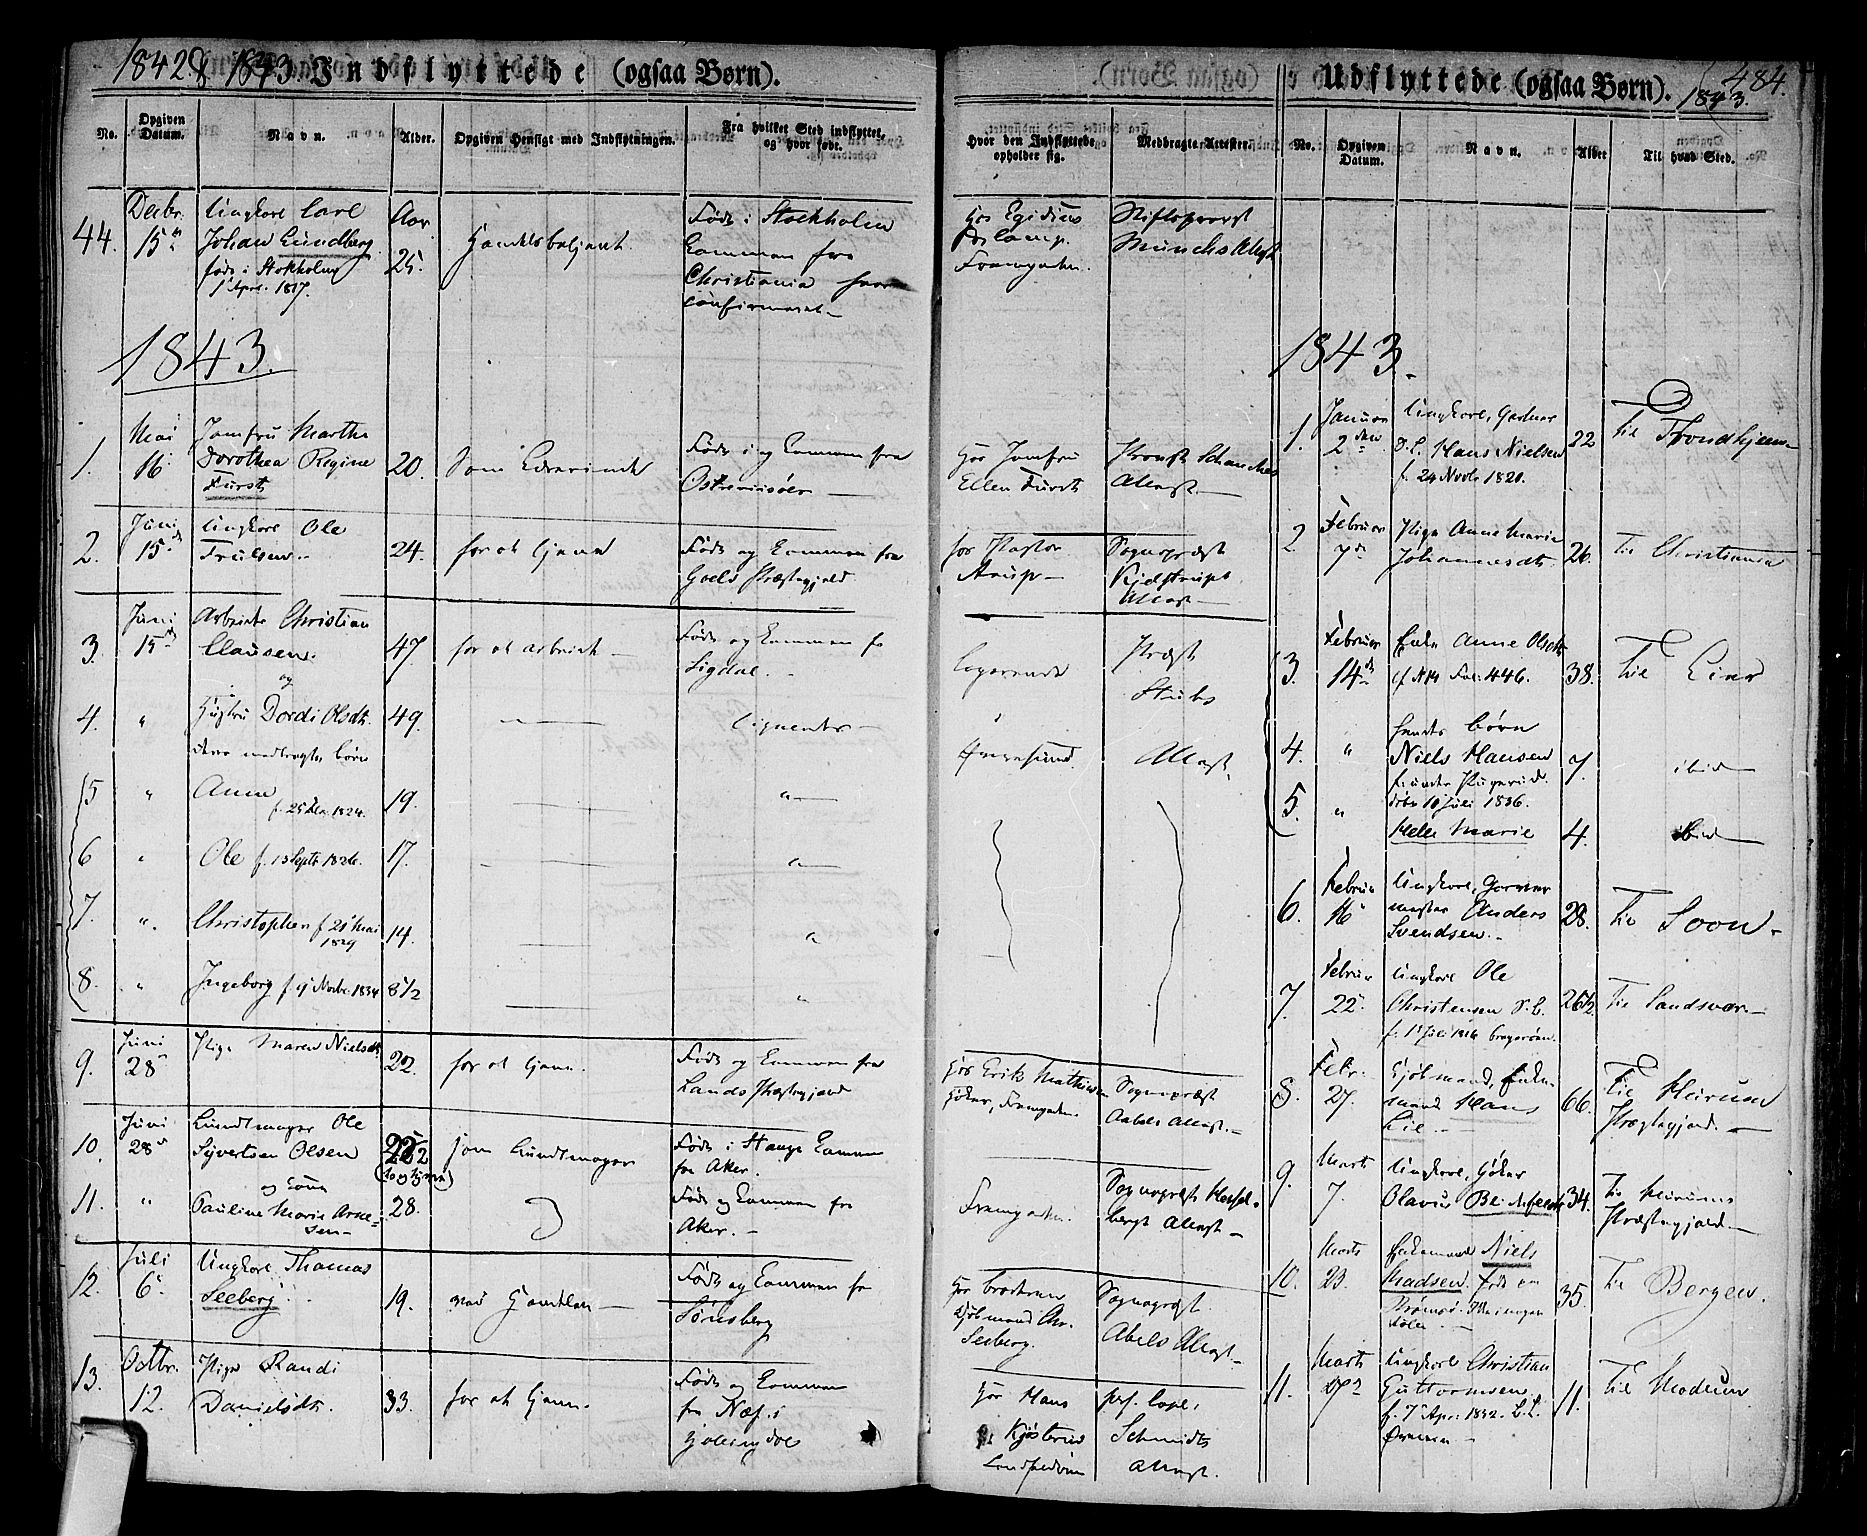 1842 & 1843. Indflyttede (ogsaa Børn).
No.
Opgiven Datum.
Navn.
Alder.
Opgiven Hensigt med Indflytningen.
Fra hvilket Sted indflyttet, og hvor født.
Hvor den Indflyttede opholder sig.
Medbragte Attester.
44.
Decbr. 15
Ungkarl Carl
Johan Lundberg
født i Stokholm
1 April 1817.
Aar 25.
Handelsbetjent
Født i Stockholm
kommen fra
Christiania hvor
confirmeret
Hos Egidius
Framgaden.
Stiftsprovst
Munchs Attest
1843.
1.
Mai 16
Jomfru Marthe
Dorothea Regine
Furst
20.
Født i og kommen fra
Østerriisøer
Hos Jomfru
Ellen Furst
Provst
Attest.
2.
Juni 15
Ungkarl Ole
24.
for at tjene
Født og kommen fra
Goels Præstegjeld
hos Pastor
Arup
Sognepræst
Kjelstrups
Attest
3.
Juni 15
Arbeider Christian
Clausen.
og
47.
for at arbeide
Født og kommen fra
Sigdal.
Logerende
Præst
Stubs
4.
"
Hustru Dordi Olsdtr.
49.
deres medbragte børn
Attest.
5
"
Anna
19.
"
6
"
Ole f. 13 Septbr. 1826.
17.
"
7.
"
Christopher f. 21 Mai
1829
14.
"
8.
"
Ingeborg f. 9 Novbr. 1834
8 1/2
"
9.
Juni 28
Pige Maren Nielsdtr.
22.
for at tjene.
Født og kommen fra
Lands Præstegjeld
hos Erik Mathisen
Høker, Framgaden.
Sognepræst
Aabels Attest.
10.
Juni 28
Bundtmager Ole
Syvertsen Olsen
og Kone
22
som Bundtmager
Født i Stange kommen
fra Aker.
11.
"
Pauline Marie Arnesen
28.
Født og kommen fra
Aker.
Framgaden.
Sognepræst Hesselbergs Attest
12.
Juli 6
Ungkarl Thomas
Seeberg
19.
ved Handelen
Født og kommen fra
Tønsberg
hos broderen
Kjøbmand Chr.
Seeberg.
Sognepræst
Abels Attest
13.
Octbr. 12.
Pige Randi
Danielsdtr.
33.
for at tjene.
Født og kommen
fra Næs i
Hallingdal
Hos Hans
Kjøsterud
Schmidts
Attest.
Udflyttede (ogsaa Børn).
484.
1843.
No.
Opgiven Datum.
Navn.
Alder
Til hvad Sted.
1843.
1.
Januar 2den
Ungkarl, Garver
S.L. Hans Nielsen
f. 24 Novbr 1820.
22
til Trondhjem
2
Februar 7de
Pige Anne Marie
Johannesdtr.
26.
Til Christiania
3.
Februar 14de
Enke Anne Olsdtr
cf. N14 Fol: 446.
38.
Til Eker
4.
"
hendes børn
Niels Hansen
7.
ibid
døbt 10 Juli 1836.
5.
"
Helle Marie
4.
ibid
6.
Februar 16
Ungkarl, Garvermester Anders
Svendsen.
28.
Til Soon.
7.
Februar 22
Ungkarl Ole
Christensen S.L.
f. 1 Juli 1816 Bragernæs.
26 1/2
Til Sandsvær
8.
Febr. 27.
Kjøbmand, Enkemand Hans
Lie.
66.
Til Hurum
Præstegjeld.
9.
Marts 7.
Ungkarl, Høker
Olavus
34.
Til Hurums
Præstegjeld.
10.
Marts 23.
Enkemand Niels
Madsen
35.
Til Bergen.
11.
Marts 27
Ungkarl Christian
Guttormsen
f. 7 Apr: 1832.
11.
Til Modum